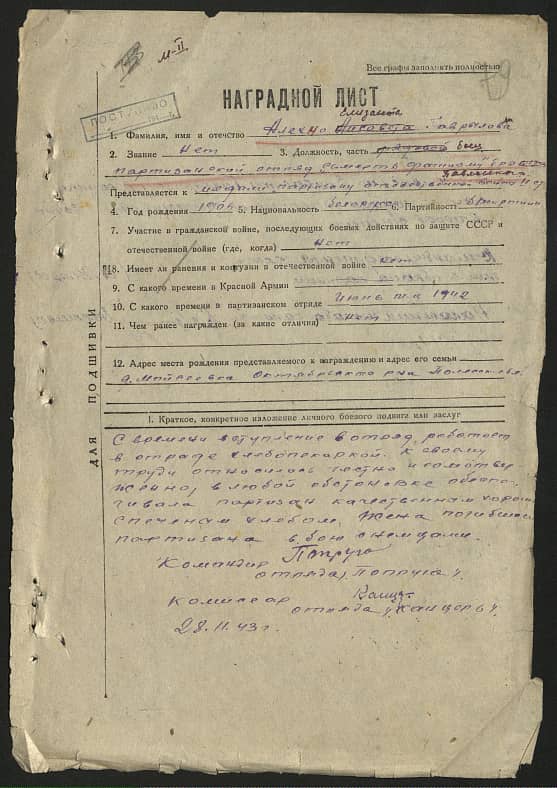 М-II
Все графы заполнять полностью
ПОСТУПИЛО
НАГРАДНОЙ ЛИСТ
Елизавета
1. Фамилия, имя и отчество Алехно Гаврылова
2. Звание Нет 3. Должность, часть боец
партизанский отряд „Смерть фашизму"
Представляется к медали партизану отечественной войны II ст
4. Год рождения 190 5. Национальность белоруска Партийность б/партийн
7. Участие в гражданской войне, последующих боевых действиях по защите СССР и
отечественной войне (где, когда) нет
8. Имеет ли ранения и контузии в отечественной войне нет
9. С какого времени в Красной Армии
10. С какого времени в партизанском отряде Июнь м-ц 1942
11. Чем ранее награжден (за какие отличия) нет
12. Адрес места рождения представляемого к награждению и адрес его семьи
д. Октябрьского р-на Полесской
ДЛЯ ПОДШИВКИ
I. Краткое, конкретное изложение личного боевого подвига или заслуг
С времени вступление в отряд, работает
в отраде хлебопекаркой. К своему
труду относилась честно и самотвер
женно, в любой обстановке обеспе
чивала партизан качественнам хорошо
спеченам хлебом. Жена погибшего
партизана в бою с немцами.
Командир Попруга
отряда /Попруга/
Комиссар Канцер
отряда /Канцер/
28.11.43 г.